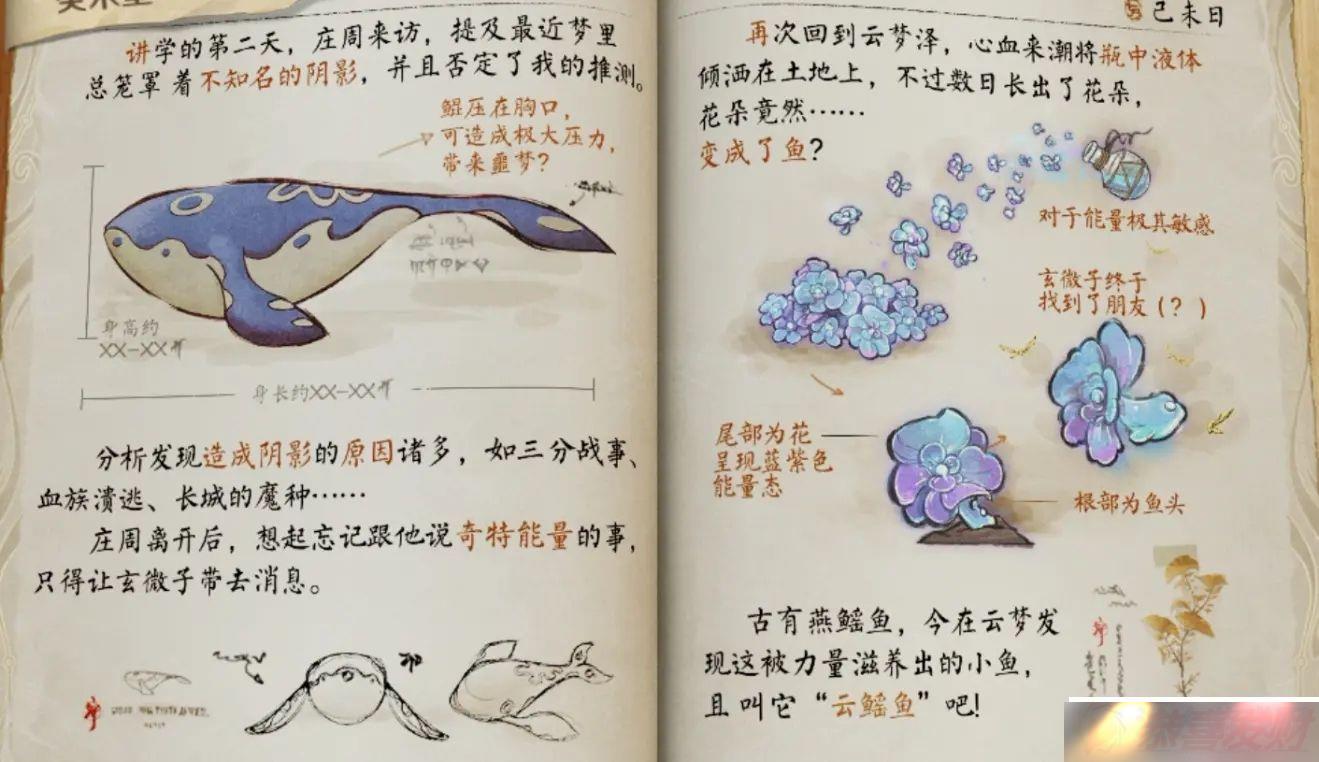 讲学的第二天，庄周来访，提及最近梦里
总笼罩着不知名的阴影，并且否定了我的推测。
鲲压在胸口，
可造成极大压力，
带来噩梦？
身高约
XX-XX
身长约XX-XX
分析发现造成阴影的原因诸多，如三分战事、
血族溃逃、长城的魔种……
庄周离开后，想起忘记跟他说奇特能量的事，
只得让玄微子带去消息。
己未日
再次回到云梦泽，心血来潮将瓶中液体
倾洒在土地上，不过数日长出了花朵，
花朵竟然……
变成了鱼？
对于能量极其敏感
玄微子终于
找到了朋友（？）
尾部为花
呈现蓝紫色
能量态
根部为鱼头
古有燕鳐鱼，今在云梦发
现这被力量滋养出的小鱼，
且叫它“云鳐鱼”吧！